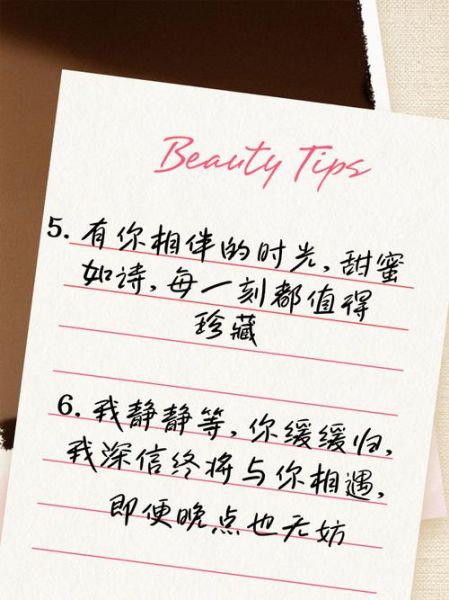 Beauty Tips
5. 有你相伴的时光,甜蜜
如诗,每一刻都值得
珍藏
6. 我静静等,你缓缓归,
我深信终将与你相遇,
即便晚点也无妨